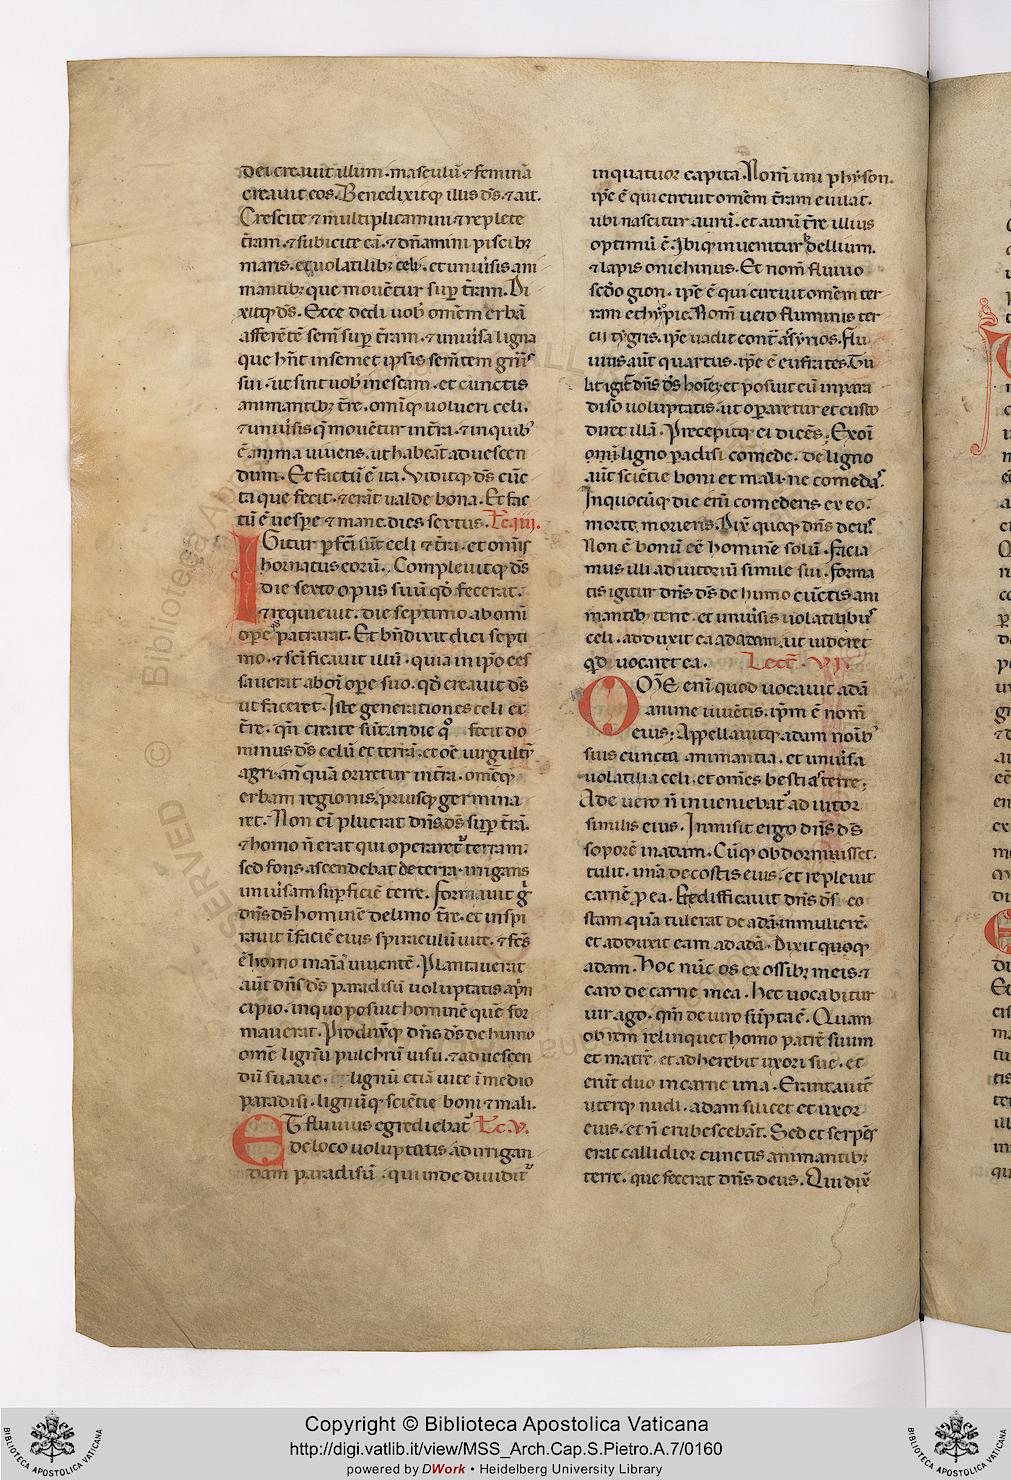 dei creauit illum. masculũ ⁊ feminã
creauit eos. Benedixitq; illis d̃s. ⁊ ait.
Crescite ⁊ multiplicamini ⁊ replete
t̃ram. ⁊ subicite eã. ⁊ dñamini piscibꝫ
maris. et uolatilibꝫ celi. et uniũsis ani
mantibꝫ que mouẽtur suꝑ t̃ram. Di
xitq; d̃s. Ecce dedi uob̾ omẽm erbã
afferẽtẽ sem̃ suꝑ t̃ram. ⁊ uniũsa ligna
que hñt in semet ipsis sem̃tem gñis
sui. ut sint uob̾ in escam. et cunctis
animantibꝫ t̃re. omiq; uolucri celi.
⁊ uniũsis q̃ mouẽtur in t̃ra. ⁊ in quib̾
ẽ anima uiuens. ut habeãt ad uescen
dum. Et factũ ẽ ita. Viditq; d̃s cũc
ta que fecit. ⁊ erãt ualde bona. Et fac
tũ ẽ uesꝑe ⁊ mane. dies sextus. Lc. iiij.
IGitur ꝑfc̃i sũt celi ⁊ t̃ra. et omĩs
hornatus eorũ. Compleuitq; d̃s
die sexto opus suũ qd̃ fecerat.
⁊ requieuit. die septimo ab omi
oꝑe ꝙ patrarat. Et bñdixit diei septi
mo. ⁊ sc̃ificauit illũ. quia in ip̃o ces
sauerat ab om̃i oꝑe suo. qd̃ creauit d̃s
ut faceret. Iste generationes celi et
t̃re. qñ create sũt. in die qͦ fecit do
minus d̃s celũ et terrã. et oẽ uirgultũ
agri. anᵗ quã oriretur in t̃ra. omẽq;
erbam regionis. priusq̃ germina
ret. Non eĩ pluerat dñs d̃s suꝑ t̃rã.
⁊ homo ñ erat qui operaret᷑ terram.
sed fons. ascendebat de terra. irrigans
uniũsam suꝑficiẽ terre. Formauit gͥ
dñs d̃s hominẽ de limo t̃re. et inspi
rauit ĩ faciẽ eius spiraculũ uite. ⁊ fc̃s
ẽ homo in aĩa uiuentẽ. Plantauerat
aũt dñs d̃s paradisũ uoluptatis a pͥn
cipio. in quo posuit hominẽ quẽ for
mauerat. Produxitq; dñs d̃s de humo
omẽ lignũ pulchrũ uisu. ⁊ ad uescen
dũ suaue. lignũ etiã uite ĩ medio
paradisi. lignũq; sciẽtie boni ⁊ mali.
ET fluuius egrediebat᷑ Lc. V.
de loco uoluptatis ad irrigan
dam paradisũ. qui inde diuidit᷑
in quatuor capita. Nom̃ uni physon.
ip̃e ẽ qui circuit omẽm t̃ram euilat.
ubi nascitur aurũ. et aurũ t̃re illius
optimũ ẽ. Ibiq; inuenitur bdellium.
⁊ lapis onichinus. Et nom̃ fluuio
sc̃do gion. ip̃e ẽ qui circuit omẽm ter
ram ethyopie. Nom̃ uero fluminis ter
cii tygris. ip̃e uadit cont̃ assyrios. Flu
uius aũt quartus. ip̃e ẽ eufrates. Tu
lit igit᷑ dñs d̃s hoĩez et posuit eũ in para
diso uoluptatis. ut oꝑaretur et custo
diret illã. Precepitq; ei dicẽs. Ex oĩ
om̃i ligno paradisi comede. de ligno
aũt sciẽtie boni et mali. ne comedas.
In quocũq; die eñi comederis ex eo.
morte morieris. Dix̃ quoq; dñs deus.
Non ẽ bonũ eẽ hominẽ solũ. Facia
mus illi adiutoriũ simile sui. Forma
tis igitur dñs d̃s de humo cũctis ani
mantibꝫ terre. et uniũsis uolatilibus
celi. adduxit ea ad adam. ut uideret
qd̃ uocaret ea. Lect̃. VI.
OM̃E eni quod uocauit adã
anime uiuẽtis. ip̃m ẽ nom̃
eius; Appellauitq; adam noĩb̾
suis cuncta animantia. et uniũsa
uolatilia celi. et omẽs bestias terre;
Ade uero ñ inueniebat᷑ adiutor
similis eius. Inmisit ergo dñs d̃s
soporẽ in adam. Cũq; obdormisset.
tulit. unã de costis eius. et repleuit
carnẽ ꝓ ea. Et edifficauit dñs d̃s. co
stam quã tulerat de adã. in mulierẽ.
et adduxit eam ad adã. Dixit quoq;
adam. Hoc nũc os ex ossibꝫ meis. ⁊
caro de carne mea. Hec uocabitur
uirago. qm̃ de uiro sũpta ẽ. Quam
ob rem relinquet homo patrẽ suum
et matrẽ. et adherebit uxori sue. et
erũt duo in carne una. Erant autẽ
uterq; nudi. adam silicet et uxor
eius. et ñ erubescebãt. Sed et serpẽs
erat callidior cunctis animantibꝫ
terre. que fecerat dñs deus. Qui dix̃
Copyright © Biblioteca Apostolica Vaticana
http://digi.vatlib.it/view/MSS_Arch.Cap.S.Pietro.A.7/0160
powered by DWork • Heidelberg University Library
BIBLIOTECA APOSTOLICA VATICANA
BIBLIOTECA APOSTOLICA VATICANA